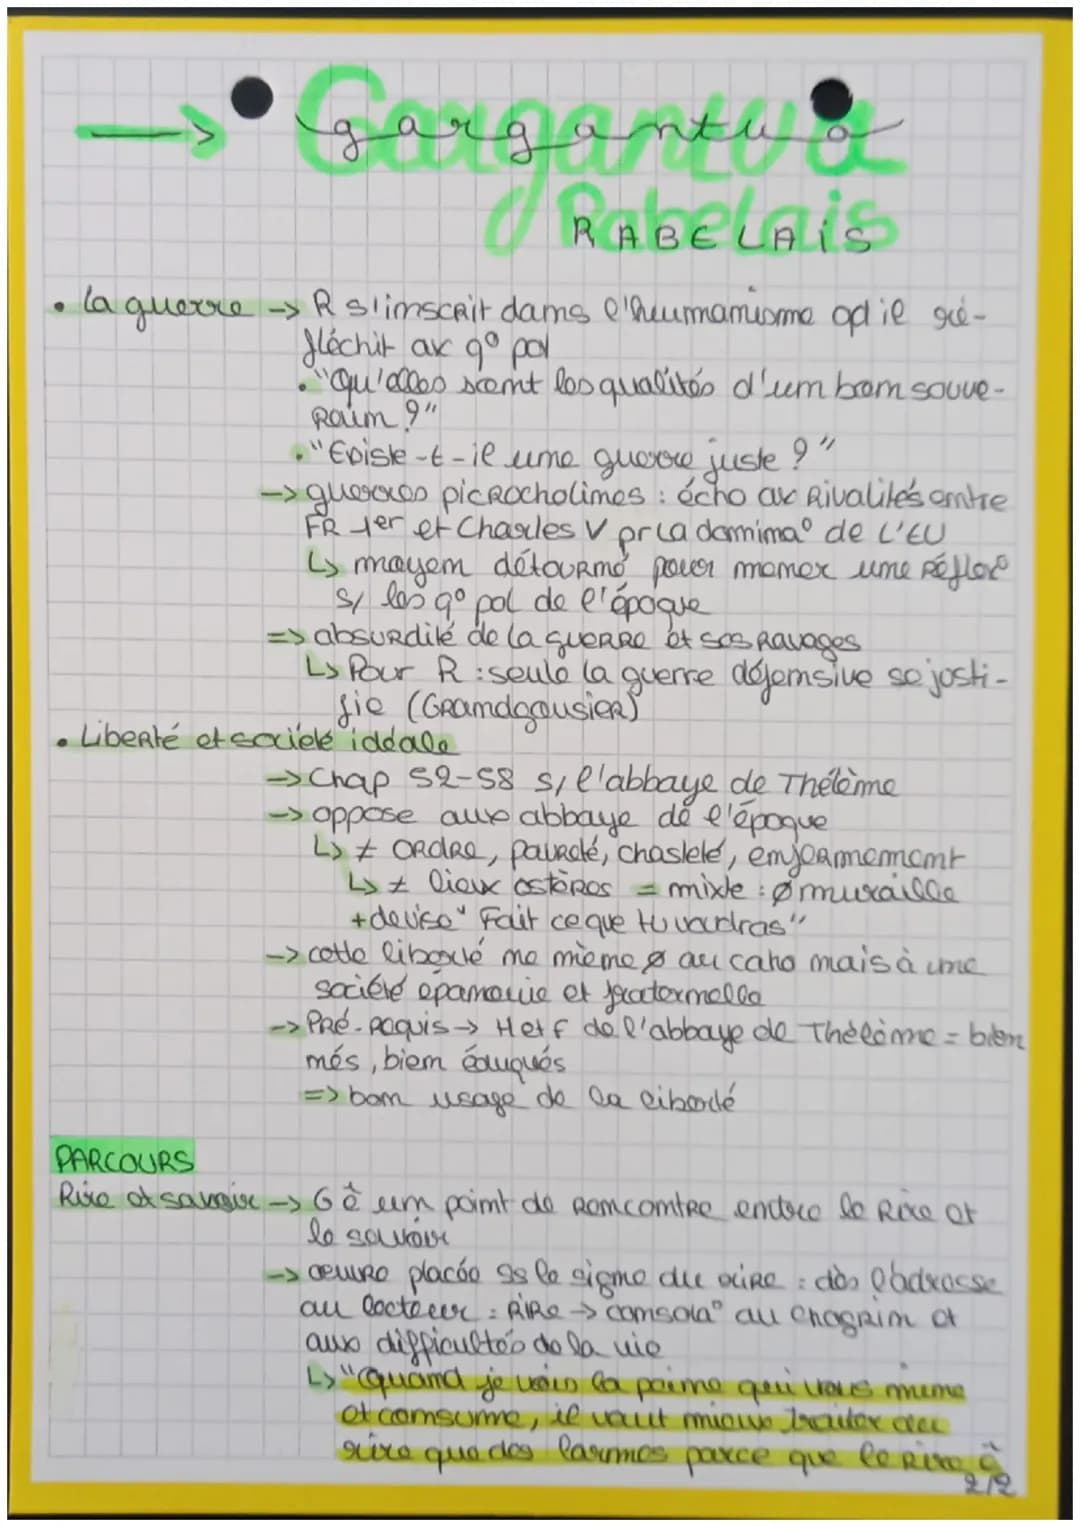 → Gargantua
RABELAIS
• La guerre → R s'inscrit dans l'humanisme où il ré-
fléchit ax q° pol
• "Qu'elles sont les qualités d'un bon souve-
rain ?"
• "Existe-t-il une guerre juste ?"
→ guerres picrocholines : écho ax rivalités entre
FR 1er et Charles V pr la domina° de l'EU
↳ moyen détourné pour mener une réflex°
s/ les q° pol de l'époque
=> absurdité de la guerre et ses ravages
↳ Pour R : seule la guerre défensive se justi-
fie (Grandgousier)
• Liberté et société idéale
→ Chap 52-58 s/ l'abbaye de Thélème
→ oppose aux abbaye de l'époque
↳ ≠ ordre, pauvreté, chasteté, enfermement
↳ ≠ lieux ostères = mixte : Ø muraille
+ devise " Fait ce que tu voudras"
→ cette liberté ne mène Ø au caho mais à une
société épanouie et fraternelle
→ Pré-requis → H et F de l'abbaye de Thélème = bien
nés, bien éduqués
=> bon usage de la liberté
PARCOURS
Rire et savoir → G ê un point de rencontre entre le rire et
le savoir
→ œuvre placée ss le signe du rire : dès l'adresse
au lecteur : rire → consola° au chagrin et
aux difficultés de la vie
↳ "Quand je vois la peine qui vous mine
et consume, il vaut mieux traiter du
rire que des larmes parce que le rire ê
2/2